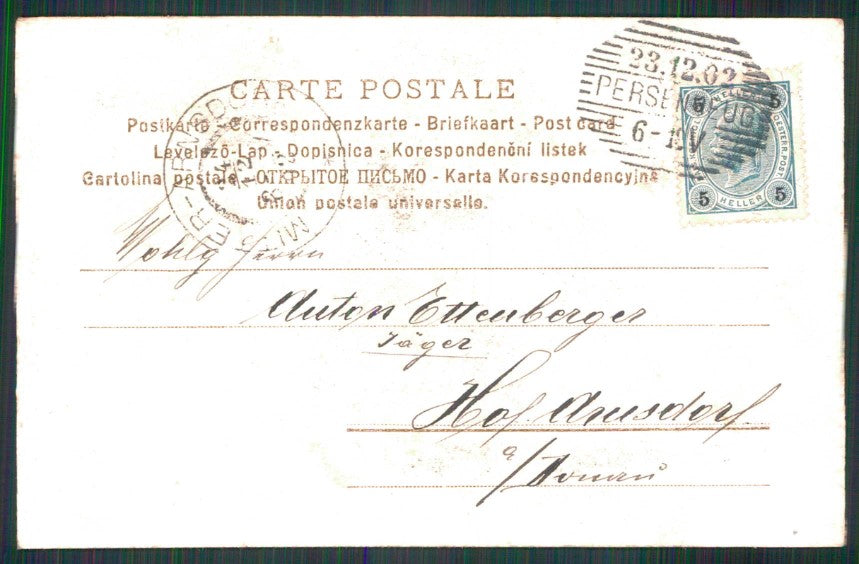 CARTE POSTALE
Postkarte - Correspondenzkarte - Briefkaart - Post card
Levelező-Lap - Dopisnica - Korespondenční listek
Cartolina postale - ОТКРЫТОЕ ПИСЬМО - Karta Korespondencyjna
Union postale universelle.
23.12.02
PERSENBEUG
6-12V
5 5
OESTERR. POST
5 HELLER 5
Wohlg Herrn
Anton Ettenberger
Jäger
Hof Arnsdorf
a/Donau